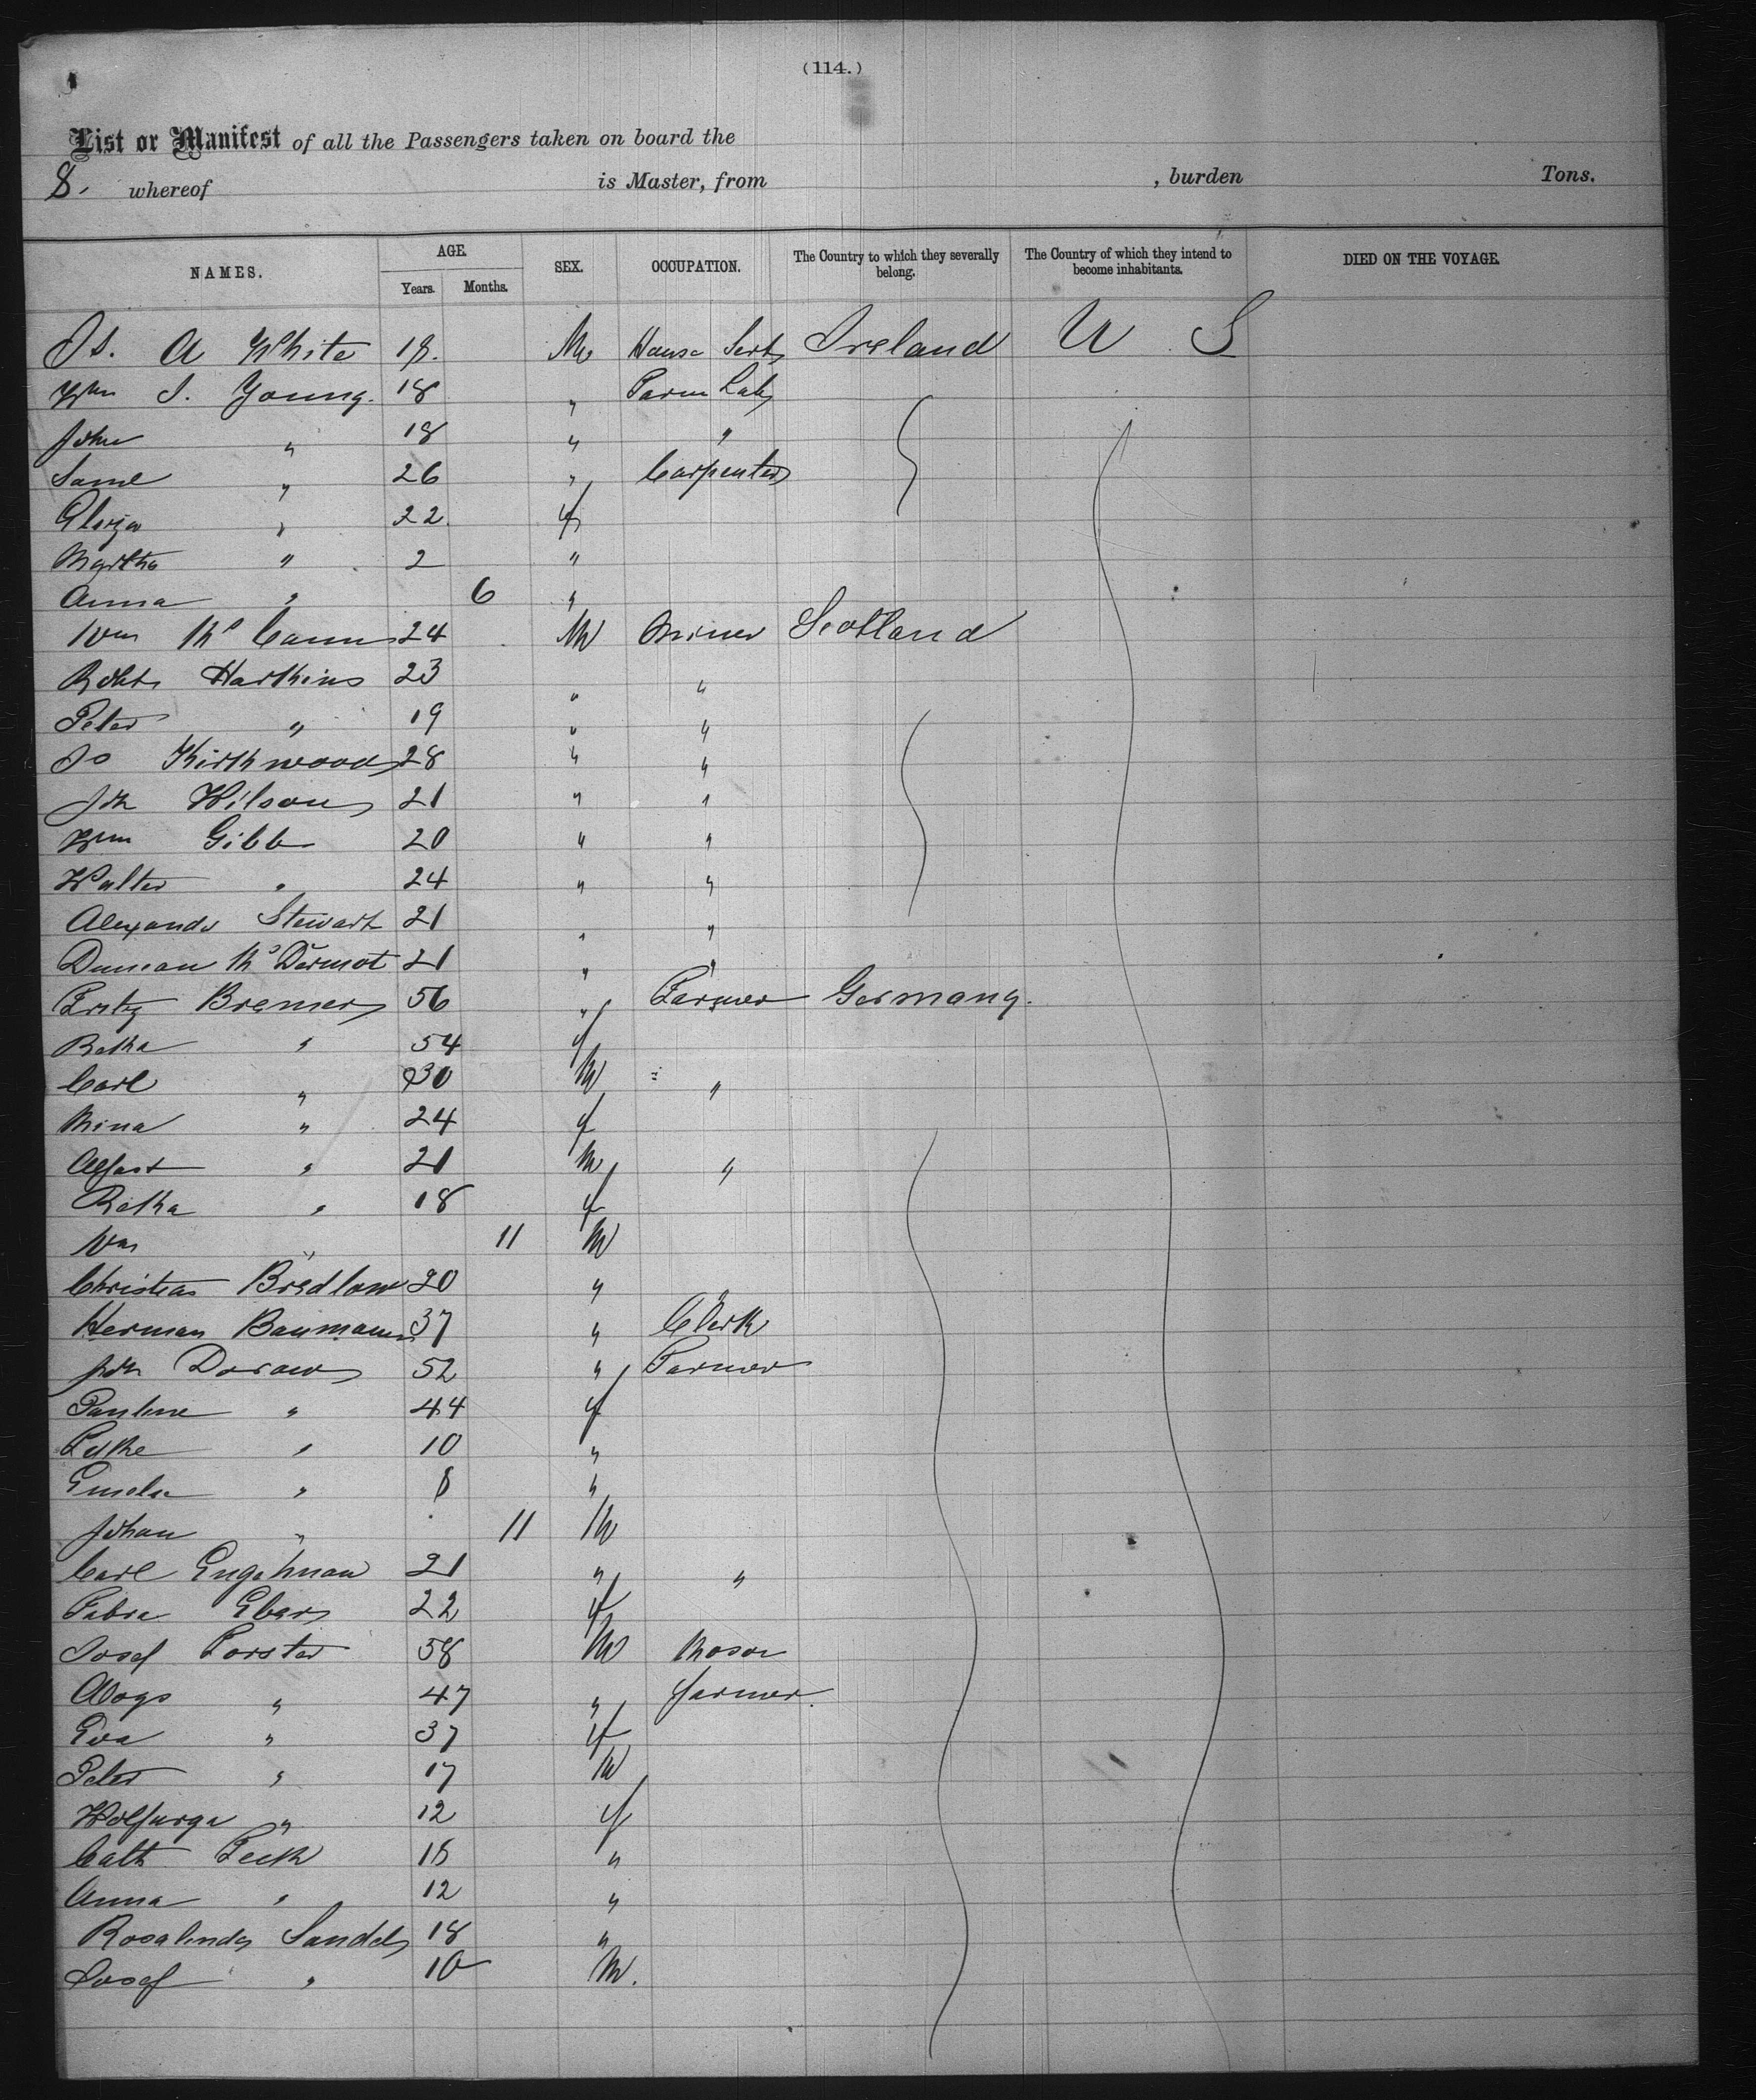 (114.)
List or Manifest of all the Passengers taken on board the
8. whereof is Master, from , burden Tons.
NAMES. AGE. Years. Months. SEX. OCCUPATION. The Country to which they severally belong. The Country of which they intend to become inhabitants. DIED ON THE VOYAGE.
Js. A White 19. M House Servt Ireland U S
Wm J. Young. 18 " Farm Lab
John " 18 " "
Saml " 26 " Carpenter
Eliza " 22 f
Martha " 2 "
Anna " 6 "
Wm McCann 24 M Miner Scotland
Robt Harkins 23 " "
Peter " 19 " "
Js Kirkwood 28 " "
Jn Wilson 21 " "
Wm Gibb 20 " "
Walter " 24 " "
Alexander Stewart 21 " "
Duncan McDermot 21 " "
Fritz Bremer 56 " Farmer Germany.
Retha " 54 f
Carl " 30 M "
Mina " 24 f
" 21 M "
Retha " 18 f
Wm " 11 M
Christian Bredlow 20 "
Herman Baumann 37 " Clerk
Joh Dorow 52 " Farmer
Pauline " 44 f
" 10 "
" 8 "
Johan " 11 M
Carl 21 " "
22 f
Josef Forster 58 M Mason
" 47 " farmer.
Eva " 37 f
Peter " 17 M
Wolfurga " 12 f
Cath "
Anna " 12 "
Rosalinda Sandel 18 "
Josef " 10 M.